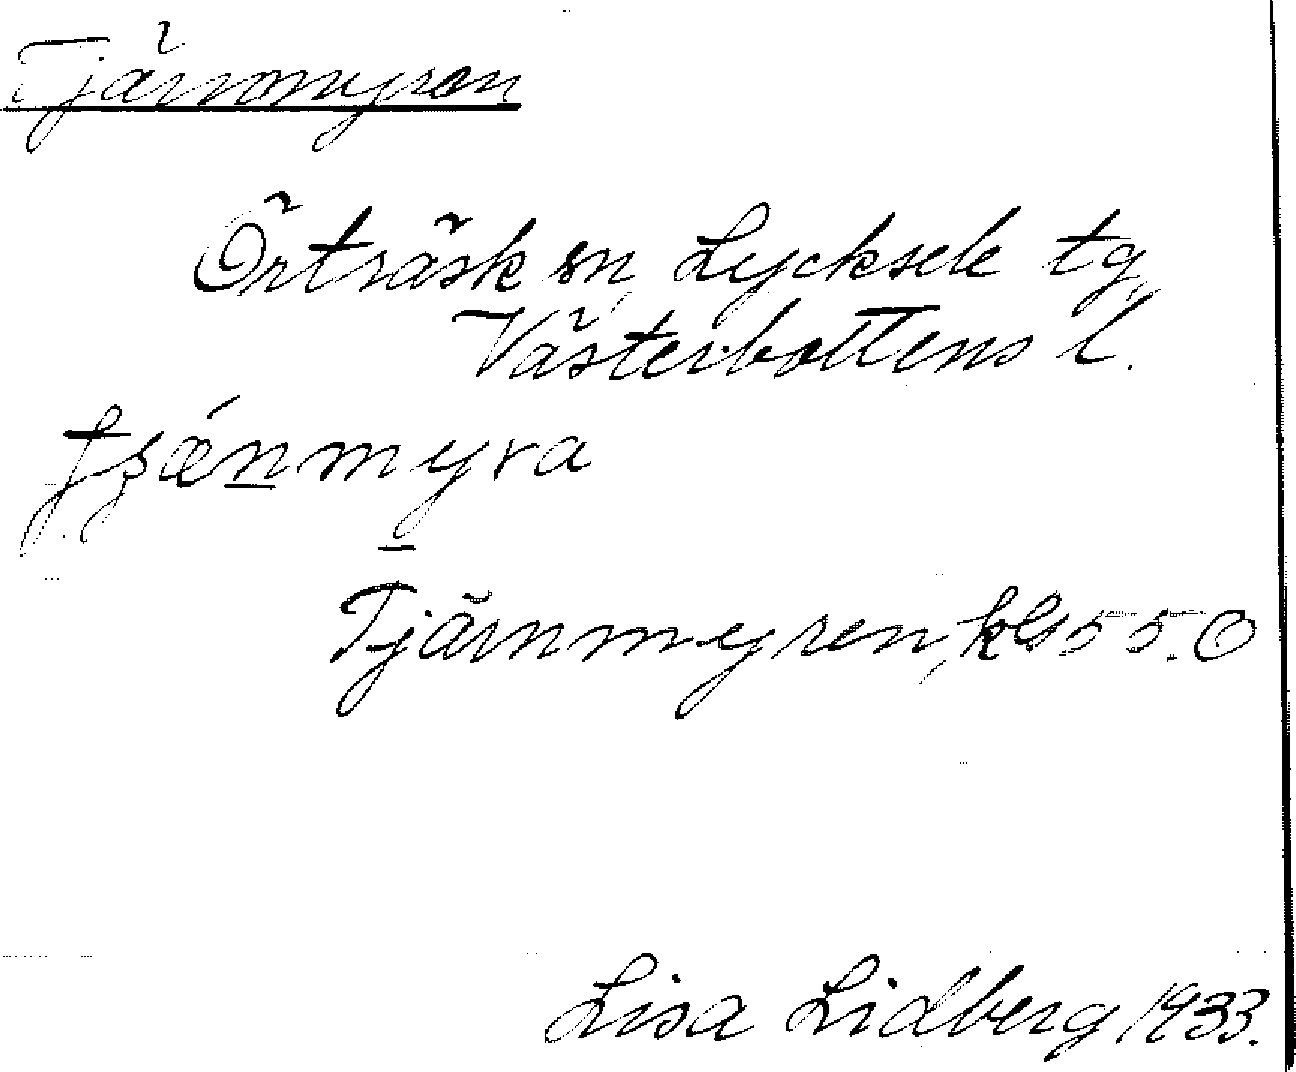 Tjärnmyren
Örträsk sn, Lycksele tg,
Västerbottens l.
Tjärnmyren, kbl 55. O
Lisa Lidberg 1933.